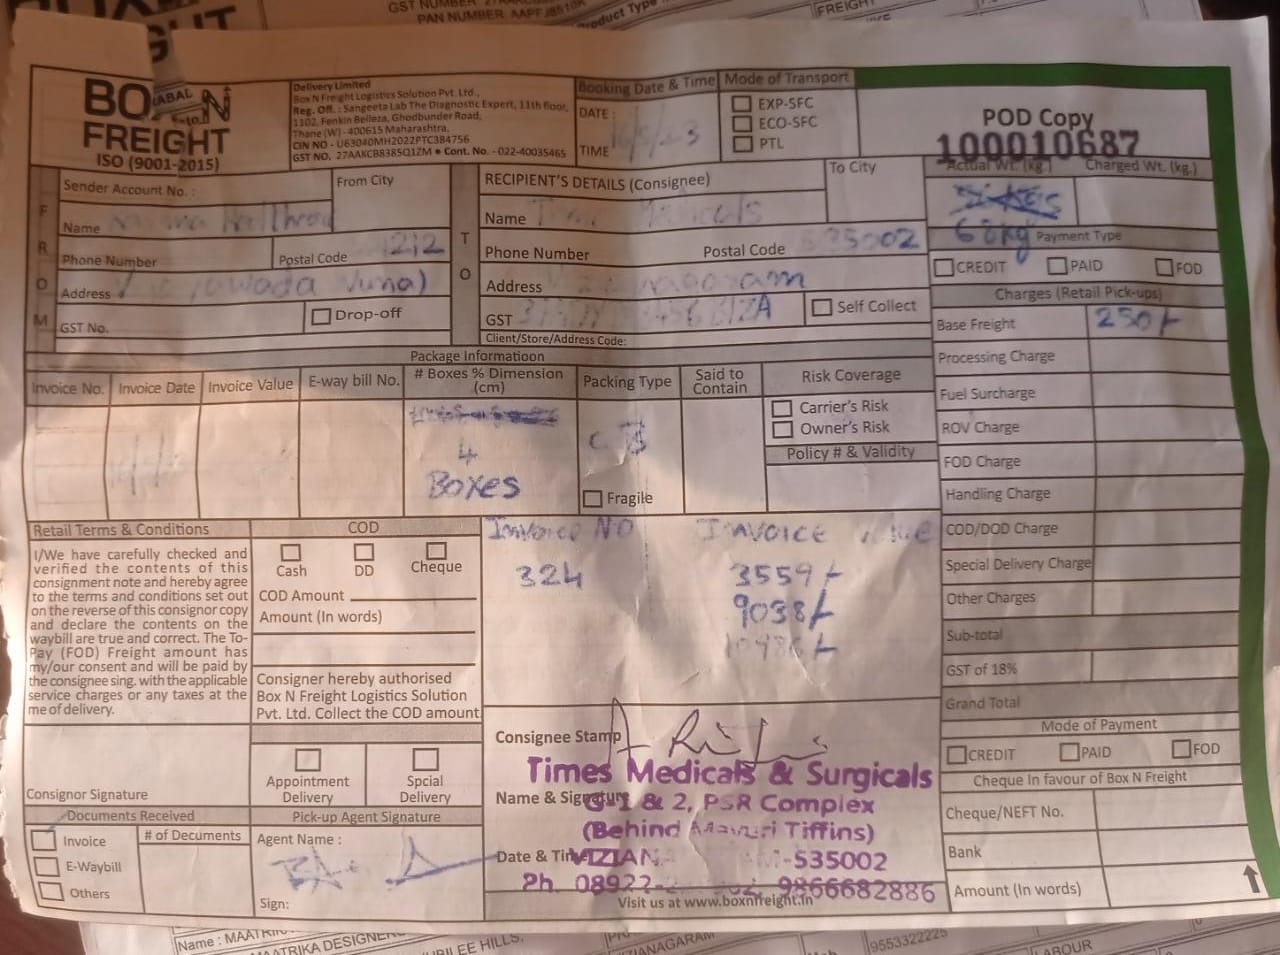 GST NUMBER
PAN NUMBER AAPFJ8510K
Product Type
FREIGHT
BOX N
FREIGHT
ISO (9001-2015)
Delivery Limited
Box N Freight Logistics Solution Pvt. Ltd.,
Reg. Off. : Sangeeta Lab The Diagnostic Expert, 11th floor,
1102, Fenkin Belleza, Ghodbunder Road,
Thane (W) - 400615 Maharashtra,
CIN NO - U63040MH2022PTC384756
GST NO. 27AAKCB8385Q1ZM • Cont. No. - 022-40035465
Booking Date & Time
DATE :
TIME
Mode of Transport
EXP-SFC
ECO-SFC
PTL
POD Copy
100010687
FROM
Sender Account No. :
From City
Name
Phone Number
Postal Code 1212
Address
GST No.
Drop-off
TO
RECIPIENT'S DETAILS (Consignee)
To City
Name Medicals
Phone Number
Postal Code 535002
Address
GST
Self Collect
Client/Store/Address Code:
Actual Wt. (kg.)
Charged Wt. (kg.)
68kg
Payment Type
CREDIT PAID FOD
Charges (Retail Pick-ups)
Base Freight 250/-
Processing Charge
Fuel Surcharge
ROV Charge
FOD Charge
Handling Charge
COD/DOD Charge
Special Delivery Charge
Other Charges
Sub-total
GST of 18%
Grand Total
Mode of Payment
CREDIT PAID FOD
Cheque In favour of Box N Freight
Cheque/NEFT No.
Bank
Amount (In words)
Package Informatioon
Invoice No.
Invoice Date
Invoice Value
E-way bill No.
# Boxes % Dimension
(cm)
4
Boxes
Packing Type
CB
Fragile
Said to
Contain
Risk Coverage
Carrier's Risk
Owner's Risk
Policy # & Validity
Retail Terms & Conditions
I/We have carefully checked and
verified the contents of this
consignment note and hereby agree
to the terms and conditions set out
on the reverse of this consignor copy
and declare the contents on the
waybill are true and correct. The To-
Pay (FOD) Freight amount has
my/our consent and will be paid by
the consignee sing. with the applicable
service charges or any taxes at the
me of delivery.
COD
Cash DD Cheque
COD Amount
Amount (In words)
Consigner hereby authorised
Box N Freight Logistics Solution
Pvt. Ltd. Collect the COD amount
Invoice NO Invoice
324 3559/-
9038/-
Consignor Signature
Appointment
Delivery
Spcial
Delivery
Documents Received
Invoice
E-Waybill
Others
# of Decuments
Pick-up Agent Signature
Agent Name :
Sign:
Consignee Stamp
Name & Signature
Date & Time
Times Medicals & Surgicals
G-1 & 2, PSR Complex
(Behind Mavuri Tiffins)
-535002
Ph. 08922- 9866682886
Visit us at www.boxnfreight.in
Name :
MAATRIKA DESIGNER
JUBILEE HILLS,
VIZIANAGARAM
9553322225
LABOUR